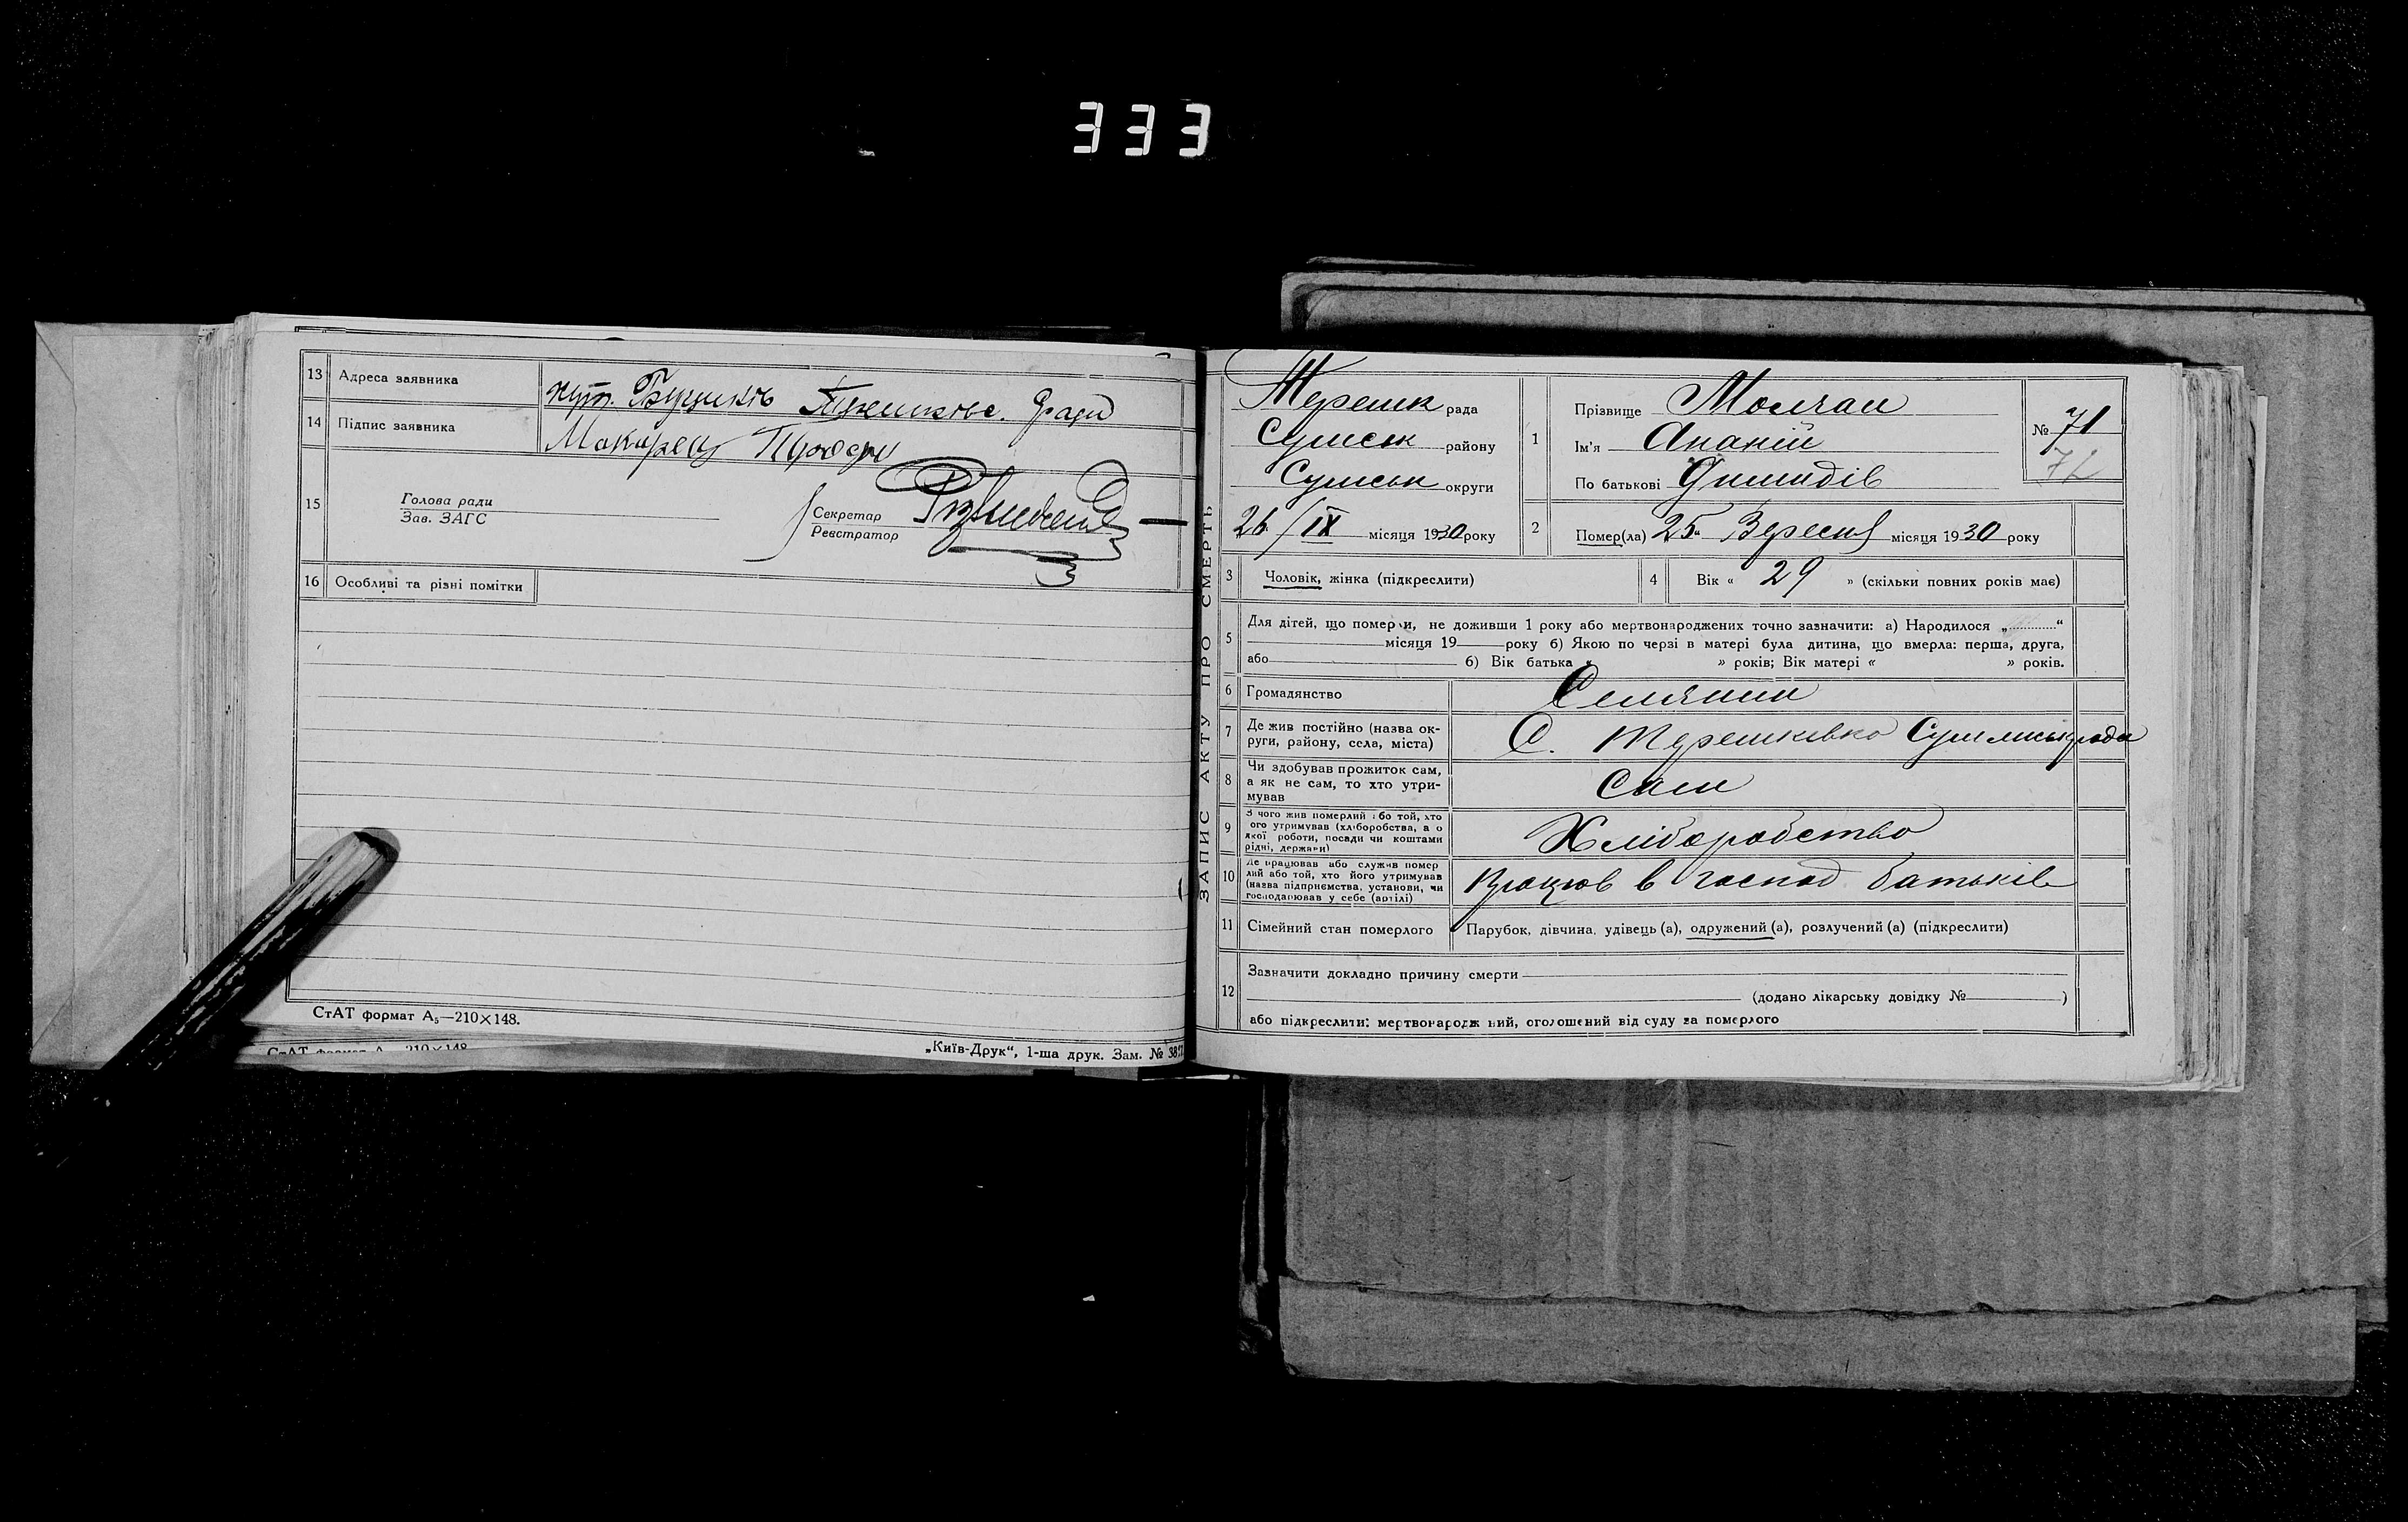 333
13 Адреса заявника хут. Гради
14 Підпис заявника
15 Голова ради
Зав. ЗАГС
Секретар
Реєстратор
16 Особливі та різні помітки
СтАТ формат А₅—210×148.
СтАТ формат А 210×148
„Київ-Друк“, 1-ша друк. Зам. № 38
ЗАПИС АКТУ ПРО СМЕРТЬ
Терешк рада
Сумськ району
Сумськ округи
26/IX місяця 1930 року
1
Прізвище Молчан
Ім'я Ананій
По батькові
№ 71
71
2 Помер(ла) 25 Вересня місяця 1930 року
3 Чоловік, жінка (підкреслити)
4 Вік « 29 » (скільки повних років має)
5 Для дітей, що померли, не доживши 1 року або мертвонароджених точно зазначити: а) Народилося „............“
місяця 19 року б) Якою по черзі в матері була дитина, що вмерла: перша, друга,
або б) Вік батька « » років; Вік матері « » років.
6 Громадянство Селянин
7 Де жив постійно (назва ок-
руги, району, села, міста) С. Терешківка Сумськ рада
8 Чи здобував прожиток сам,
а як не сам, то хто утри-
мував Сам
9 З чого жив померлий або той, хто
ого утримував (хліборобства, а о
якої роботи, посади чи коштами
рідні, держави) Хліборобство
10 Де працював або служив помер
лий або той, хто його утримував
(назва підприємства, установи, чи
господарював у себе (артілі) Працюв в господ батьків
11 Сімейний стан померлого Парубок, дівчина, удівець (а), одружений (а), розлучений (а) (підкреслити)
12 Зазначити докладно причину смерти
(додано лікарську довідку № )
або підкреслити: мертвонародж ний, оголошений від суду за померлого